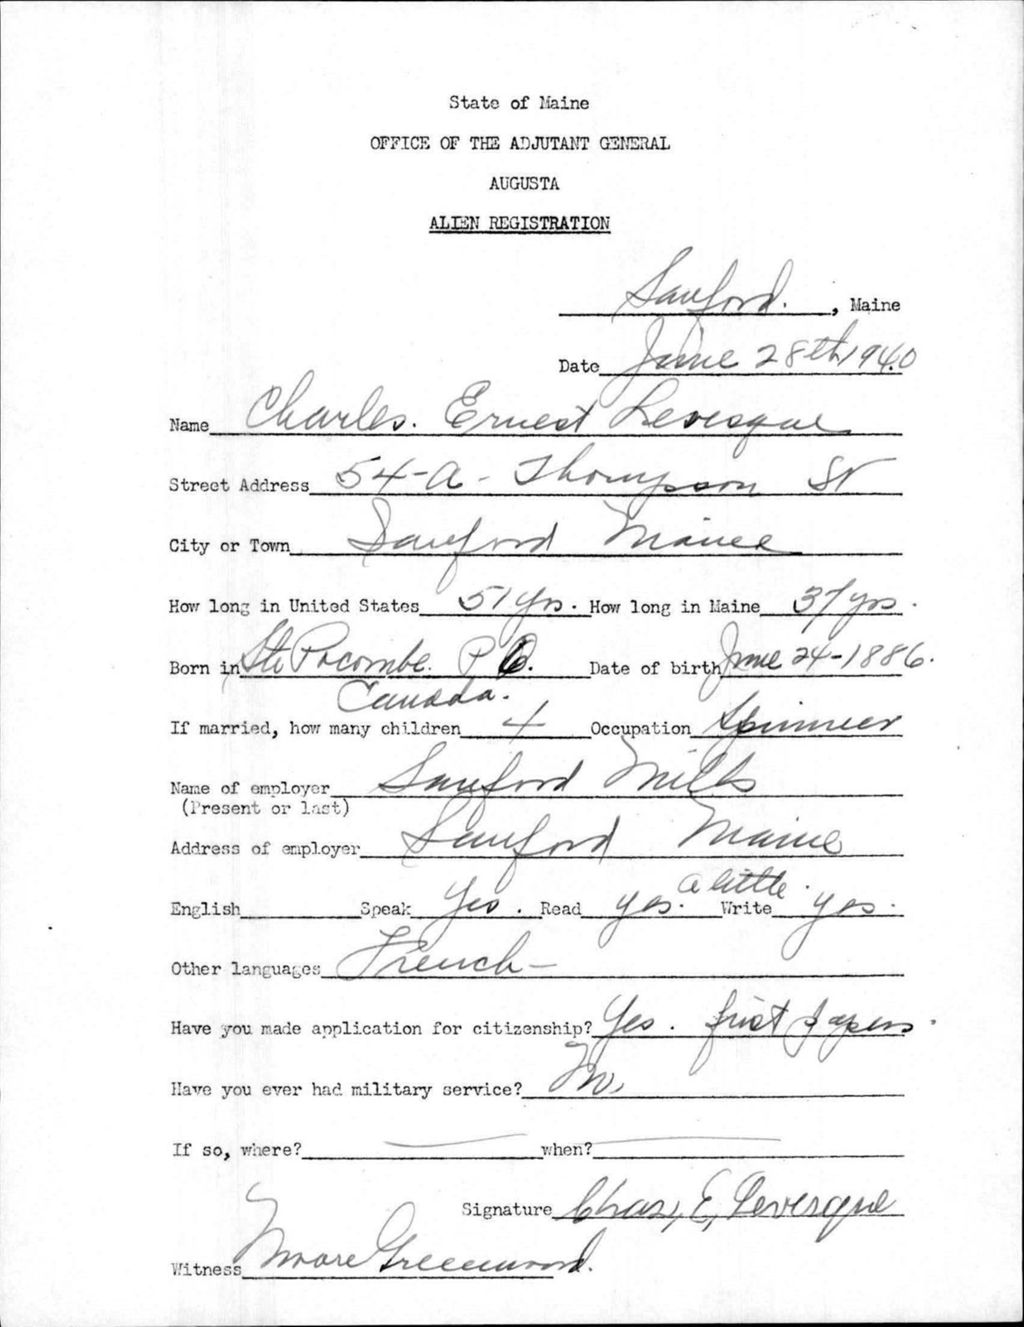 State of Maine
OFFICE OF THE ADJUTANT GENERAL
AUGUSTA
ALIEN REGISTRATION
Sanford. , Maine
Date June 28th 1940
Name Charles. Ernest Levesque
Street Address 54-A - Thompson St
City or Town Sanford Maine
How long in United States 51 yrs. How long in Maine 37 yrs.
Born in Ste P.Q. Date of birth June 24-1886.
Canada.
If married, how many children 4 Occupation Spinner
Name of employer Sanford Mills
(Present or last)
Address of employer Sanford Maine
a little
English Speak Yes. Read yes. Write yes.
Other languages French-
Have you made application for citizenship? Yes. first papers.
Have you ever had military service? No.
If so, where? when?
Signature Chas, E, Levesque
Witness Greenwood.